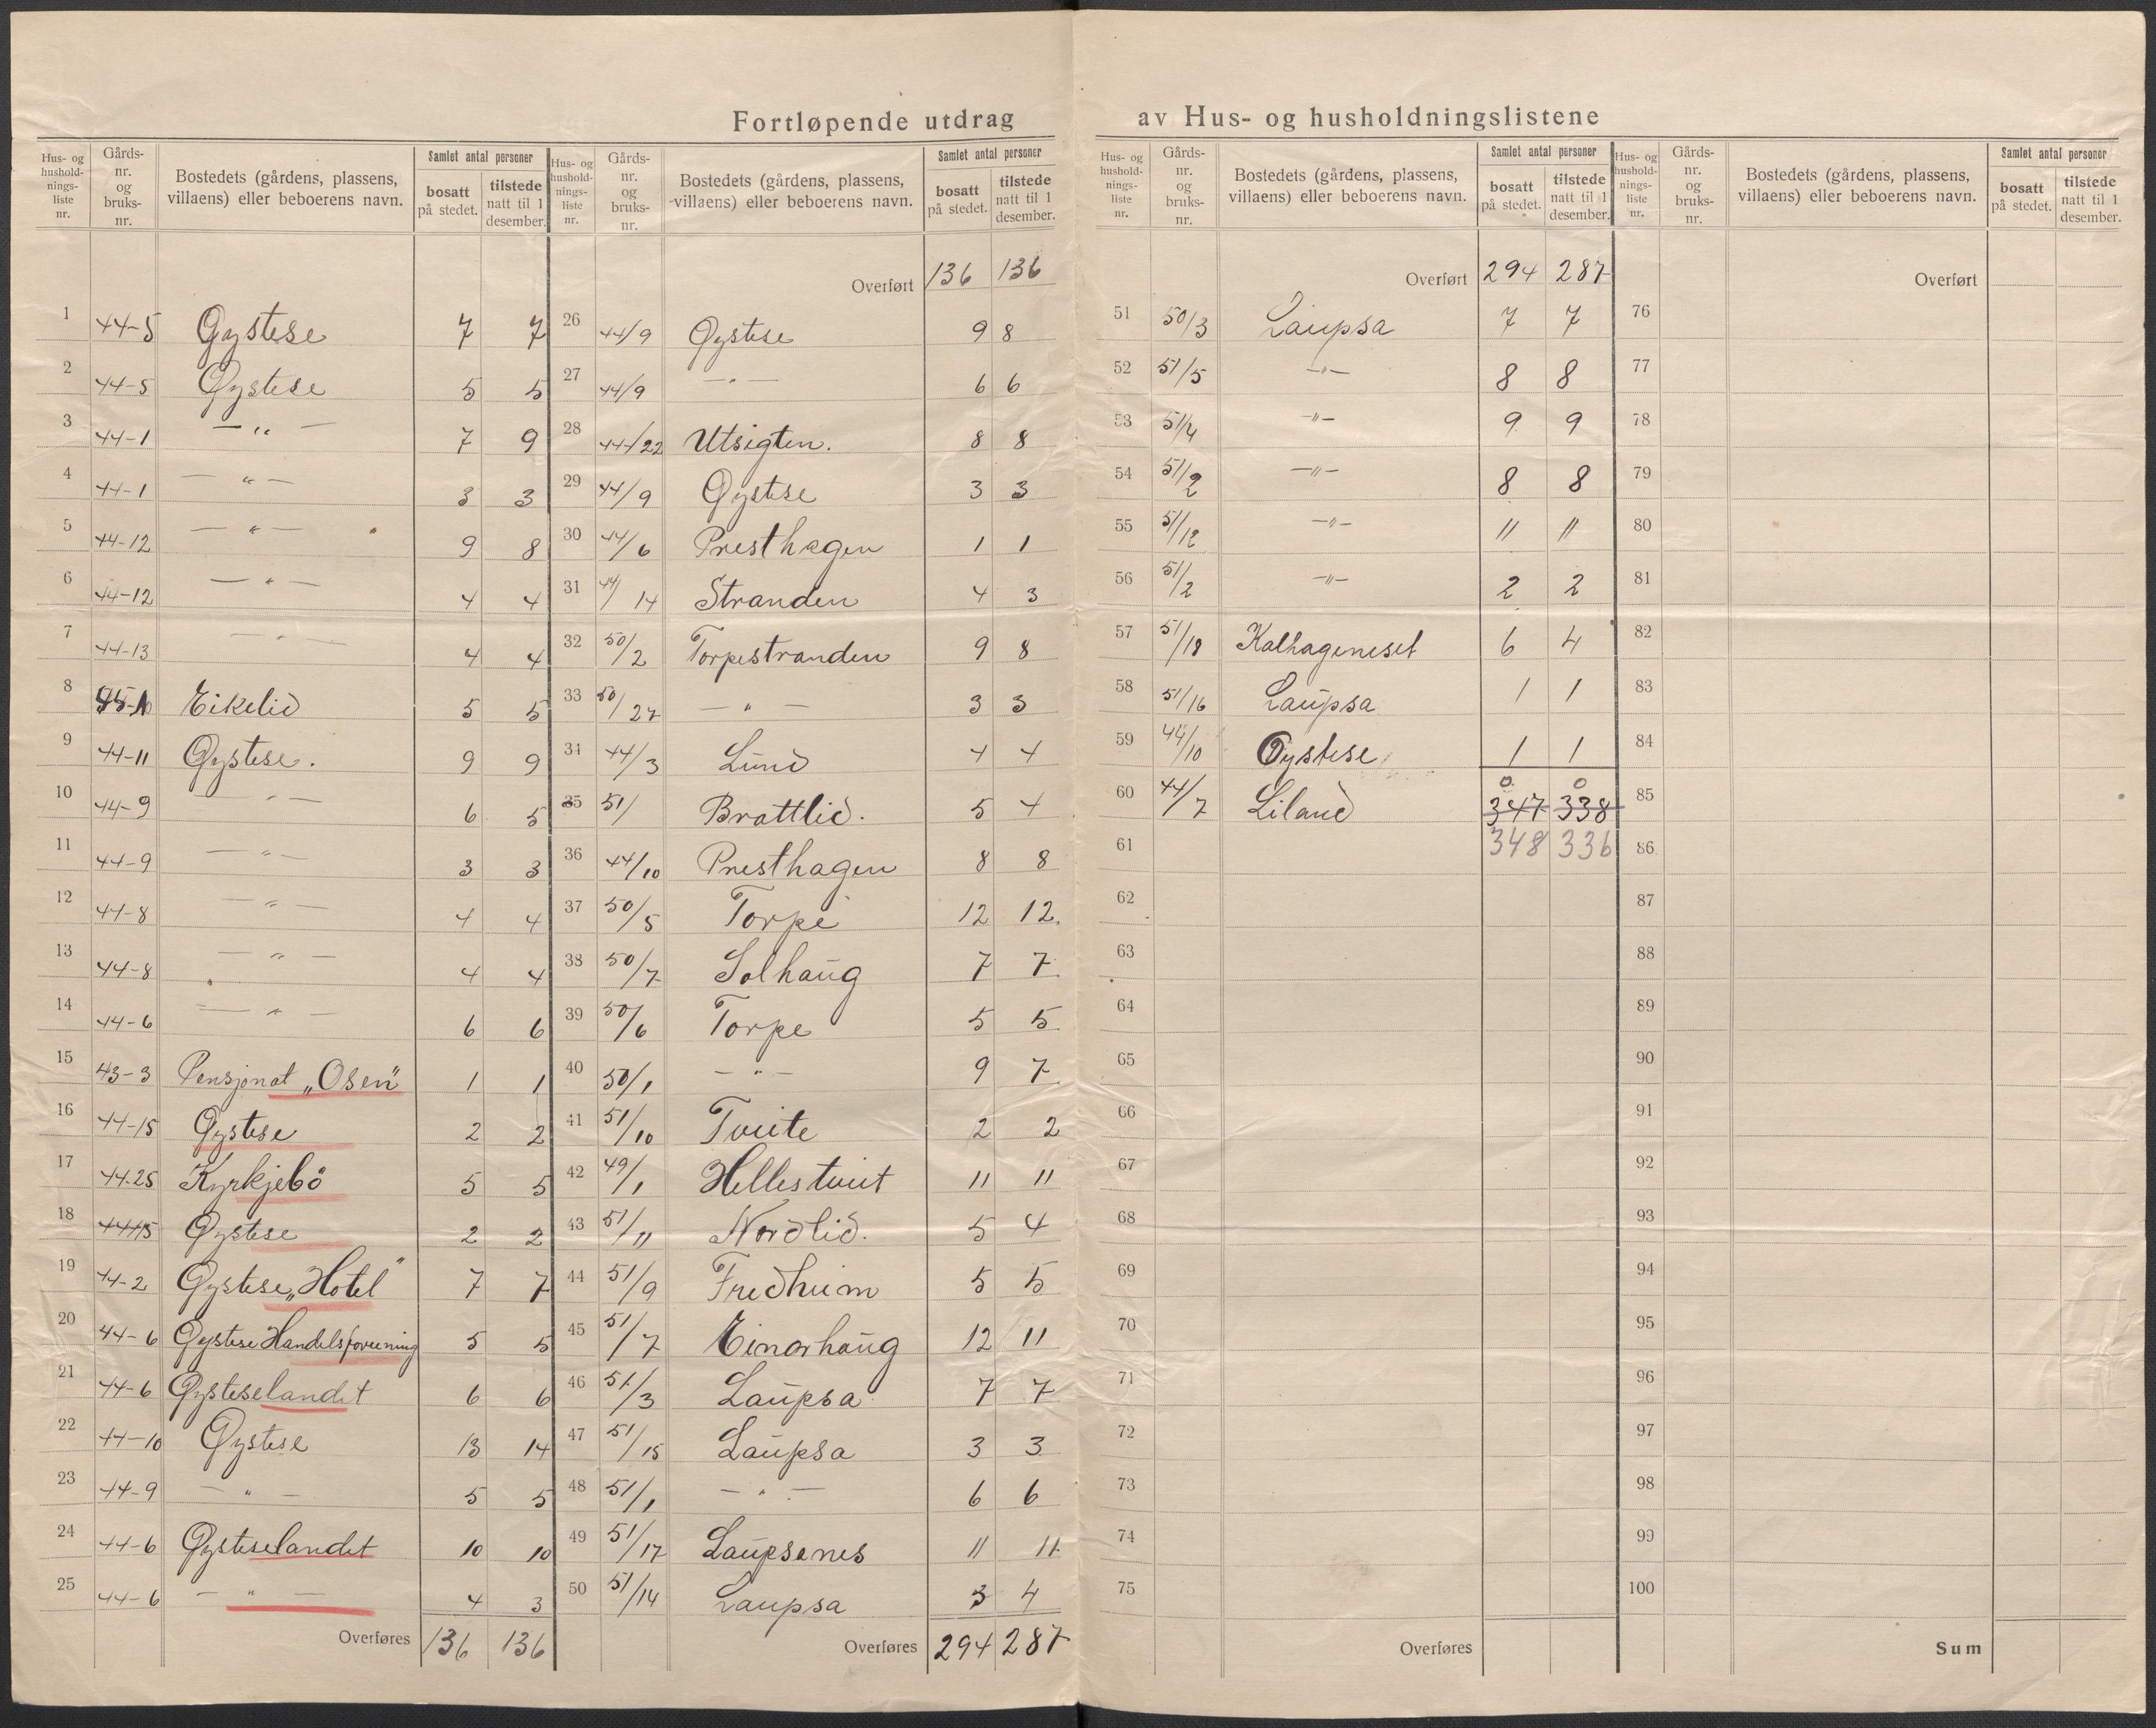 Fortløpende utdrag av Hus- og husholdningslistene
Hus- og hushold-nings-liste nr. | Gårds-nr. og bruks-nr. | Bostedets (gårdens, plassens, villaens) eller beboerens navn. | Samlet antal personer | bosatt på stedet. | tilstede natt til 1 desember.
1 44-5 Øystese 7 7
2 44-5 Øystese 5 5
3 44-1 — " — 7 9
4 44-1 — " — 3 3
5 44-12 — " — 9 8
6 44-12 — " — 4 4
7 44-13 — " — 4 4
8 Eikelid 5 5
9 44-11 Øystese. 9 9
10 44-9 — " — 6 5
11 44-9 — " — 3 3
12 44-8 — " — 4 4
13 44-8 — " — 4 4
14 44-6 — " — 6 6
15 43-3 Pensjonat „Osen" 1 1
16 44-15 Øystese 2 2
17 44.25 Kyrkjebö 5 5
18 44-15 Øystese 2 2
19 44-2 Øystese „Hotel" 7 7
20 44-6 Øystese Handelsforening 5 5
21 44-6 Øysteselandet 6 6
22 44-10 Øystese 13 14
23 44-9 — " — 5 5
24 44-6 Øysteselandet 10 10
25 44-6 — " — 4 3
Overføres 136 136
Hus- og hushold-nings-liste nr. | Gårds-nr. og bruks-nr. | Bostedets (gårdens, plassens, villaens) eller beboerens navn. | Samlet antal personer | bosatt på stedet. | tilstede natt til 1 desember.
Overført 136 136
26 44/9 Øystese 9 8
27 44/9 — " — 6 6
28 44/22 Utsigten. 8 8
29 44/9 Øystese 3 3
30 44/6 Presthagen 1 1
31 44/14 Stranden 4 3
32 50/2 Torpestranden 9 8
33 50/27 — " — 3 3
34 44/3 Lund 4 4
35 51/ Brattlid. 5 4
36 44/10 Presthagen 8 8
37 50/5 Torpe 12 12.
38 50/7 Solhaug 7 7
39 50/6 Torpe 5 5
40 50/1 — " — 9 7
41 51/10 Tveite 2 2
42 49/1 Hellestveit 11 11
43 51/11 Nordlid. 5 4
44 51/9 Fredheim 5 5
45 51/7 Einarhaug 12 11
46 51/3 Laupsa 7 7
47 51/15 Laupsa 3 3
48 51/1 — " — 6 6
49 51/17 Laupsanes 11 11
50 51/14 Laupsa 3 4
Overføres 294 287
Hus- og hushold-nings-liste nr. | Gårds-nr. og bruks-nr. | Bostedets (gårdens, plassens, villaens) eller beboerens navn. | Samlet antal personer | bosatt på stedet. | tilstede natt til 1 desember.
Overført 294 287
51 50/3 Laupsa 7 7
52 51/5 —"— 8 8
53 51/4 —"— 9 9
54 51/2 —"— 8 8
55 51/12 —"— 11 11
56 51/2 —"— 2 2
57 51/18 Kalhageneset 6 4
58 51/16 Laupsa 1 1
59 44/10 Øystese 1 1
60 44/7 Liland 0 0
347 338
61 348 336
62
63
64
65
66
67
68
69
70
71
72
73
74
75
Overføres
Hus- og hushold-nings-liste nr. | Gårds-nr. og bruks-nr. | Bostedets (gårdens, plassens, villaens) eller beboerens navn. | Samlet antal personer | bosatt på stedet. | tilstede natt til 1 desember.
Overført
76
77
78
79
80
81
82
83
84
85
86
87
88
89
90
91
92
93
94
95
96
97
98
99
100
Sum